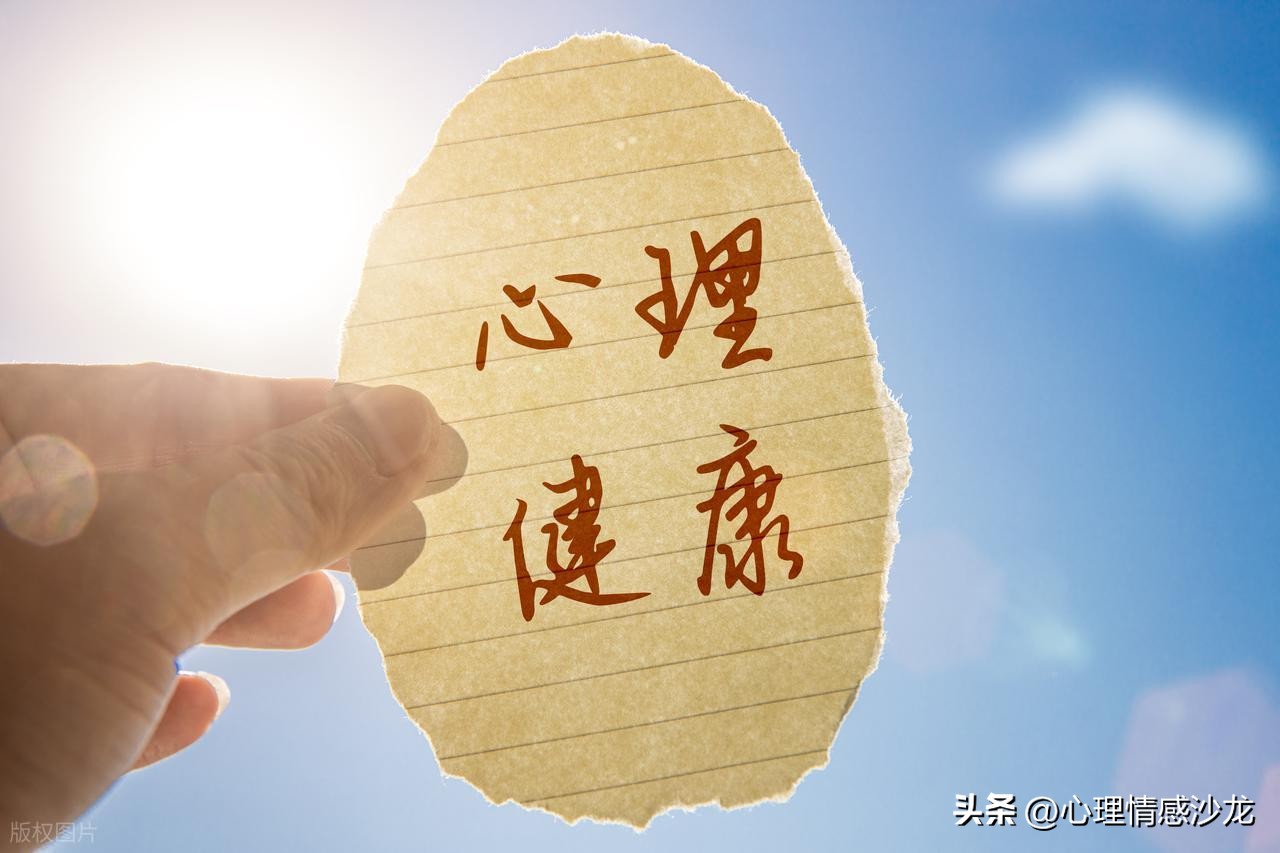 心理
健康
头条 @心理情感沙龙
版权图片